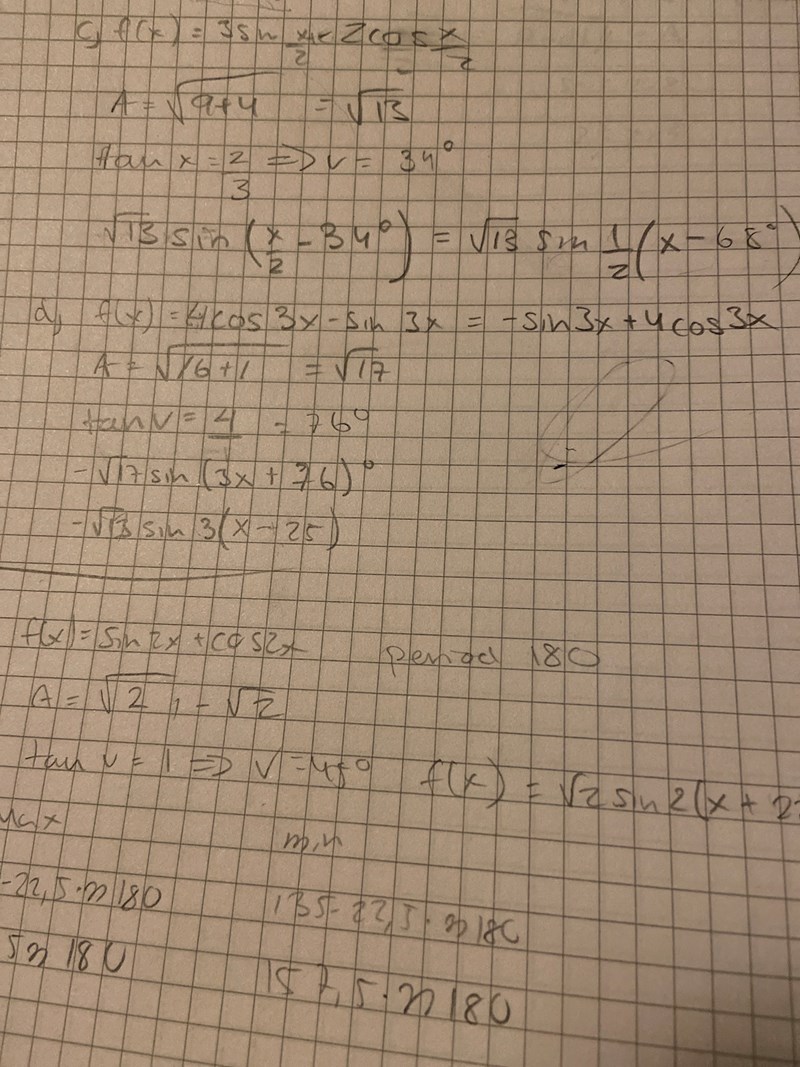 c) f(x) = 3 sin x/2 + 2 cos x/2
A = √9+4 = √13
tan x = 2/3 => v = 34°
√13 sin (x/2 - 34°) = √13 sin 1/2 (x - 68°)
d) f(x) = 4 cos 3x - sin 3x = - sin 3x + 4 cos 3x
A = √16+1 = √17
tan v = 4 = 76°
- √17 sin (3x + 76)°
- √13 sin 3(x - 25)
f(x) = sin 2x + cos 2x period 180
A = √2 = √2
tan v = 1 => v = 45° f(x) = √2 sin 2(x + 2
max min
-22,5·n180 135-22,5·n180
5n180 157,5·n180